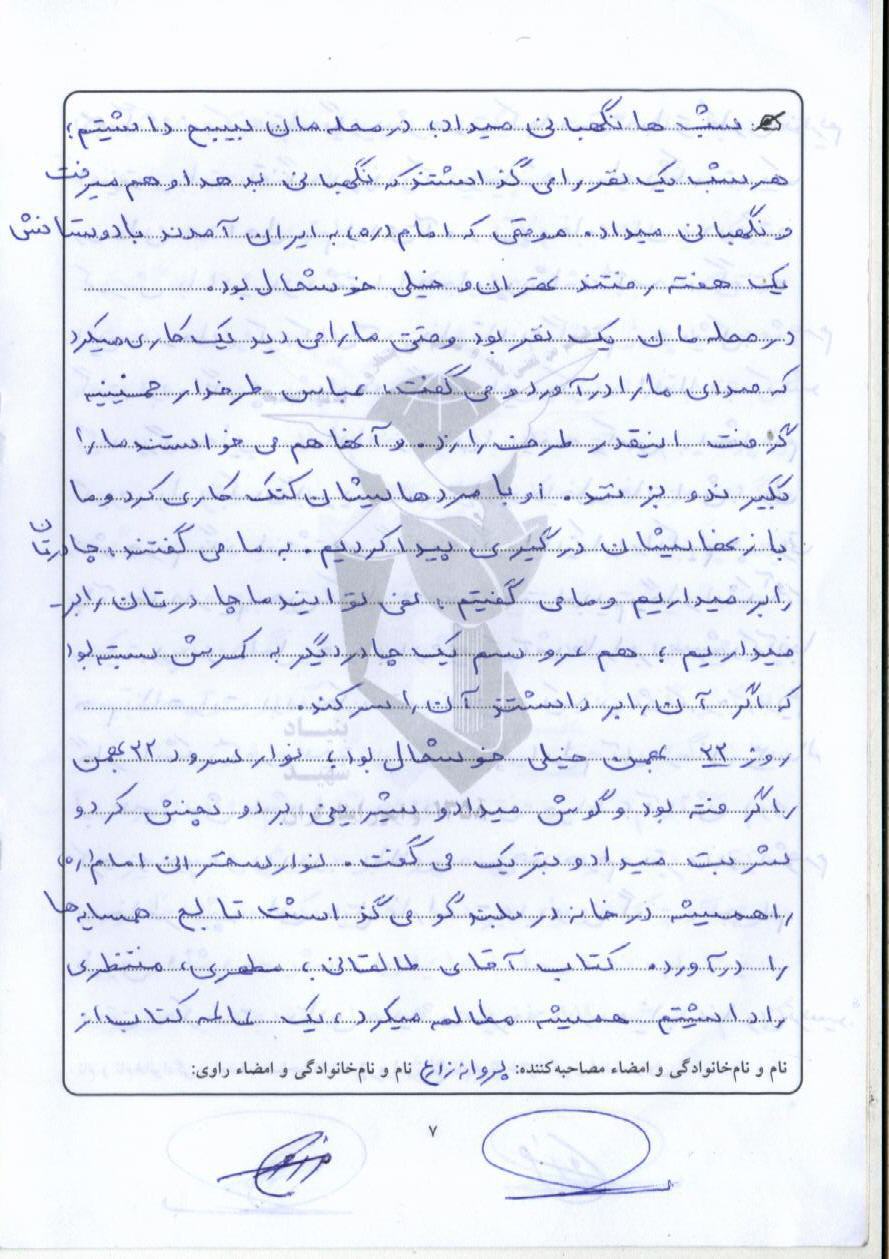 شب ها نگهبانی میداد، در محله مان بسیج داشتیم،
هر شب یک نفر را می گذاشتند که نگهبانی بدهد او هم میرفت
و نگهبانی میداد. موقعی که امام (ره) به ایران آمدند با دوستانش
یک هفته رفتند تهران و خیلی خوشحال بود.
در محله مان یک نفر بود وقتی ما را می دید یک کاری میکرد
که صدای ما را درآورد و می گفت، عباس طرفدار خمینیه
گرفت اینقدر طرفت را زد. و آنها هم می خواستند ما را
بگیرند و بزنند. او با مردهایشان کتک کاری کرد و ما
با زنهایشان درگیری پیدا کردیم. به ما می گفتند، چادرتان
را بر میداریم و ما می گفتیم، نمی توانید ما چادرتان را بر
میداریم، هم عروسم یک چادر دیگر به کمرش بسته بود
که اگر آن را برداشتند آن را سر کند.
روز ۲۲ بهمن خیلی خوشحال بود، نوار سرود ۲۲ بهمن
را گرفته بود و گوش میداد و شیرینی برد و پخش کرد و
شربت میداد و تبریک می گفت. نوار سخنرانی امام (ره)
را همیشه در خانه در بلندگو می گذاشت تا لج همسایه ها
را درآورد. کتاب آقای طالقانی، مطهری، منتظری
را داشتیم همیشه مطالعه میکرد، یک عالمه کتاب از
نام و نام‌خانوادگی و امضاء مصاحبه‌کننده: پروانه زارع نام و نام‌خانوادگی و امضاء راوی:
۷
بنیاد
شهید